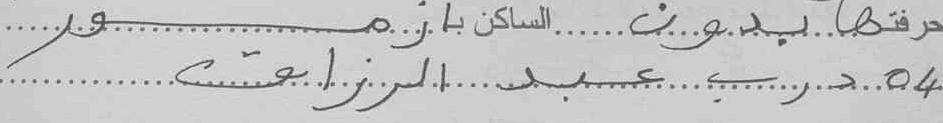 حرفتها بدون الساكن بازمور
04 درب عبد الرزاق